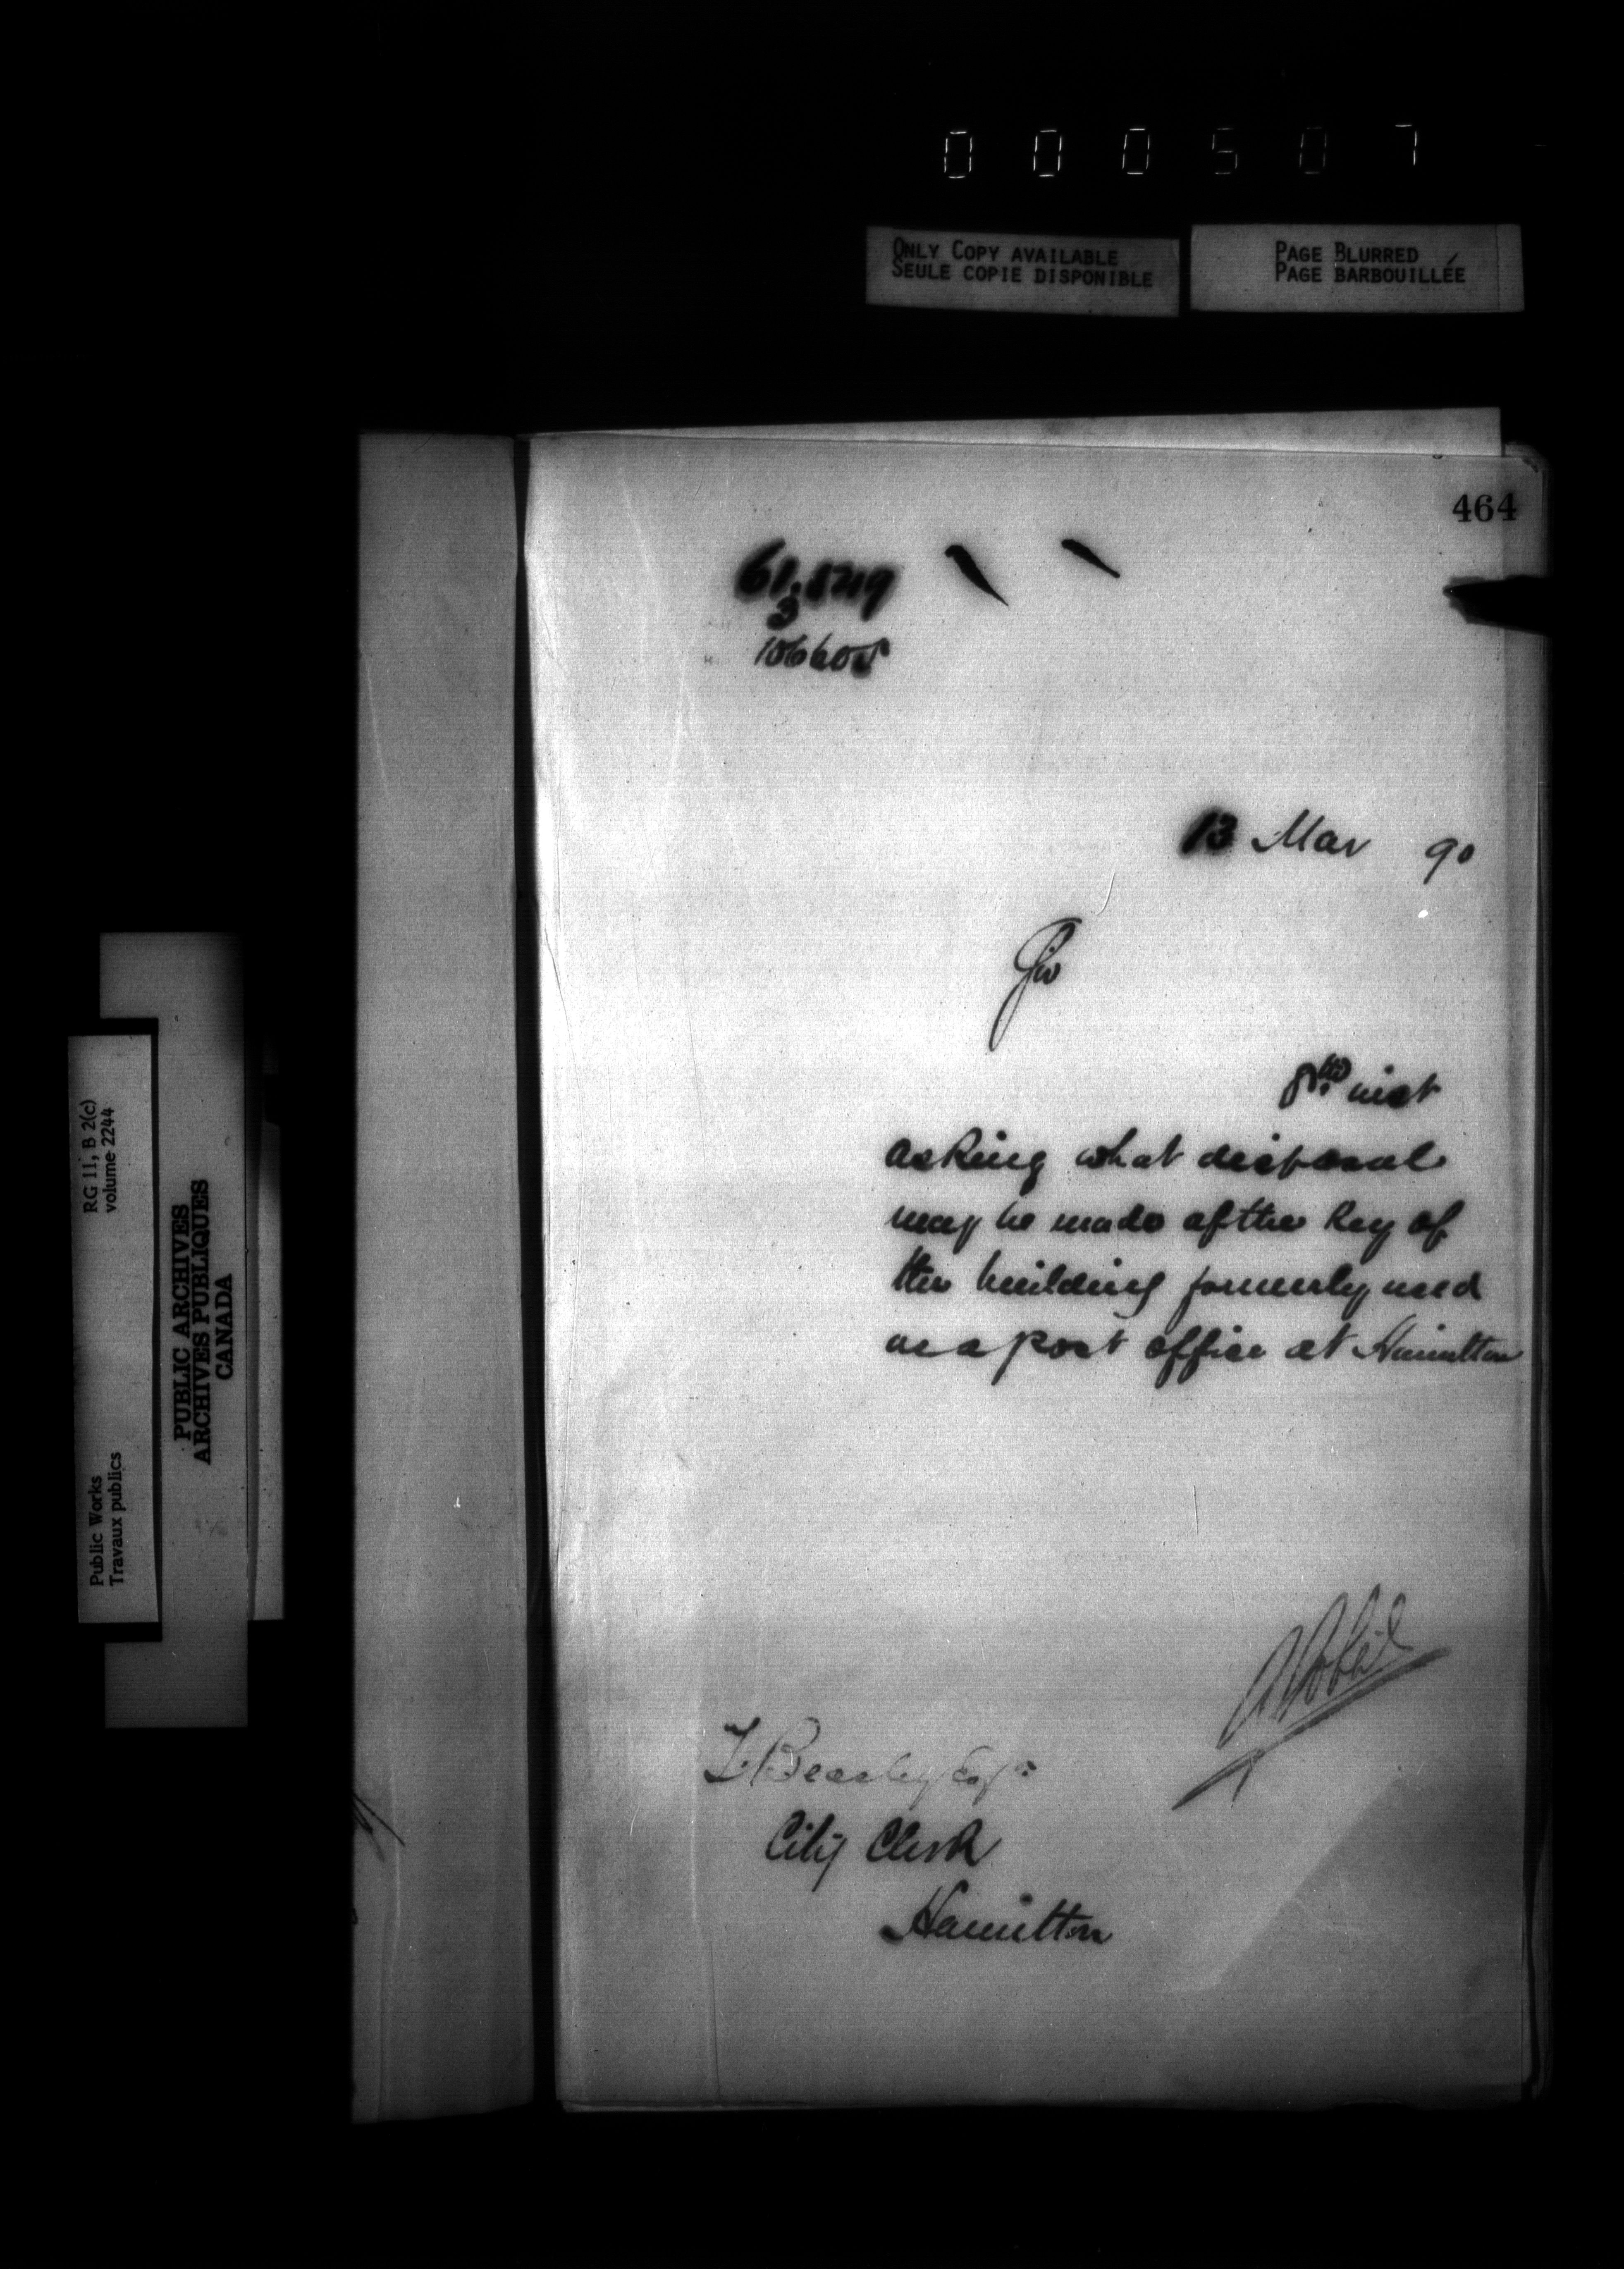 000507
ONLY COPY AVAILABLE
SEULE COPIE DISPONIBLE
PAGE BLURRED
PAGE BARBOUILLÉE
464
3
106605
13 Mar 90
Sir
8th inst
asking what disposal
may be made of the key of
the building formerly used
as a post office at Hamilton
T Beasley Esqr
City Clerk
Hamilton
RG 11, B 2(c)
volume 2244
Public Works
Travaux publics
PUBLIC ARCHIVES
ARCHIVES PUBLIQUES
CANADA